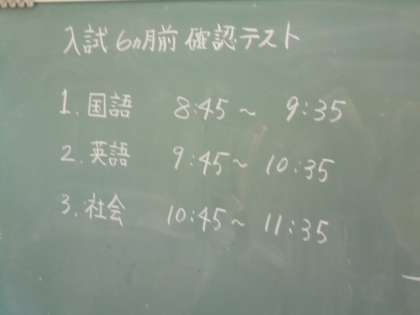 入試6ヵ月前 確認テスト
1. 国語 8:45 ~ 9:35
2. 英語 9:45 ~ 10:35
3. 社会 10:45 ~ 11:35